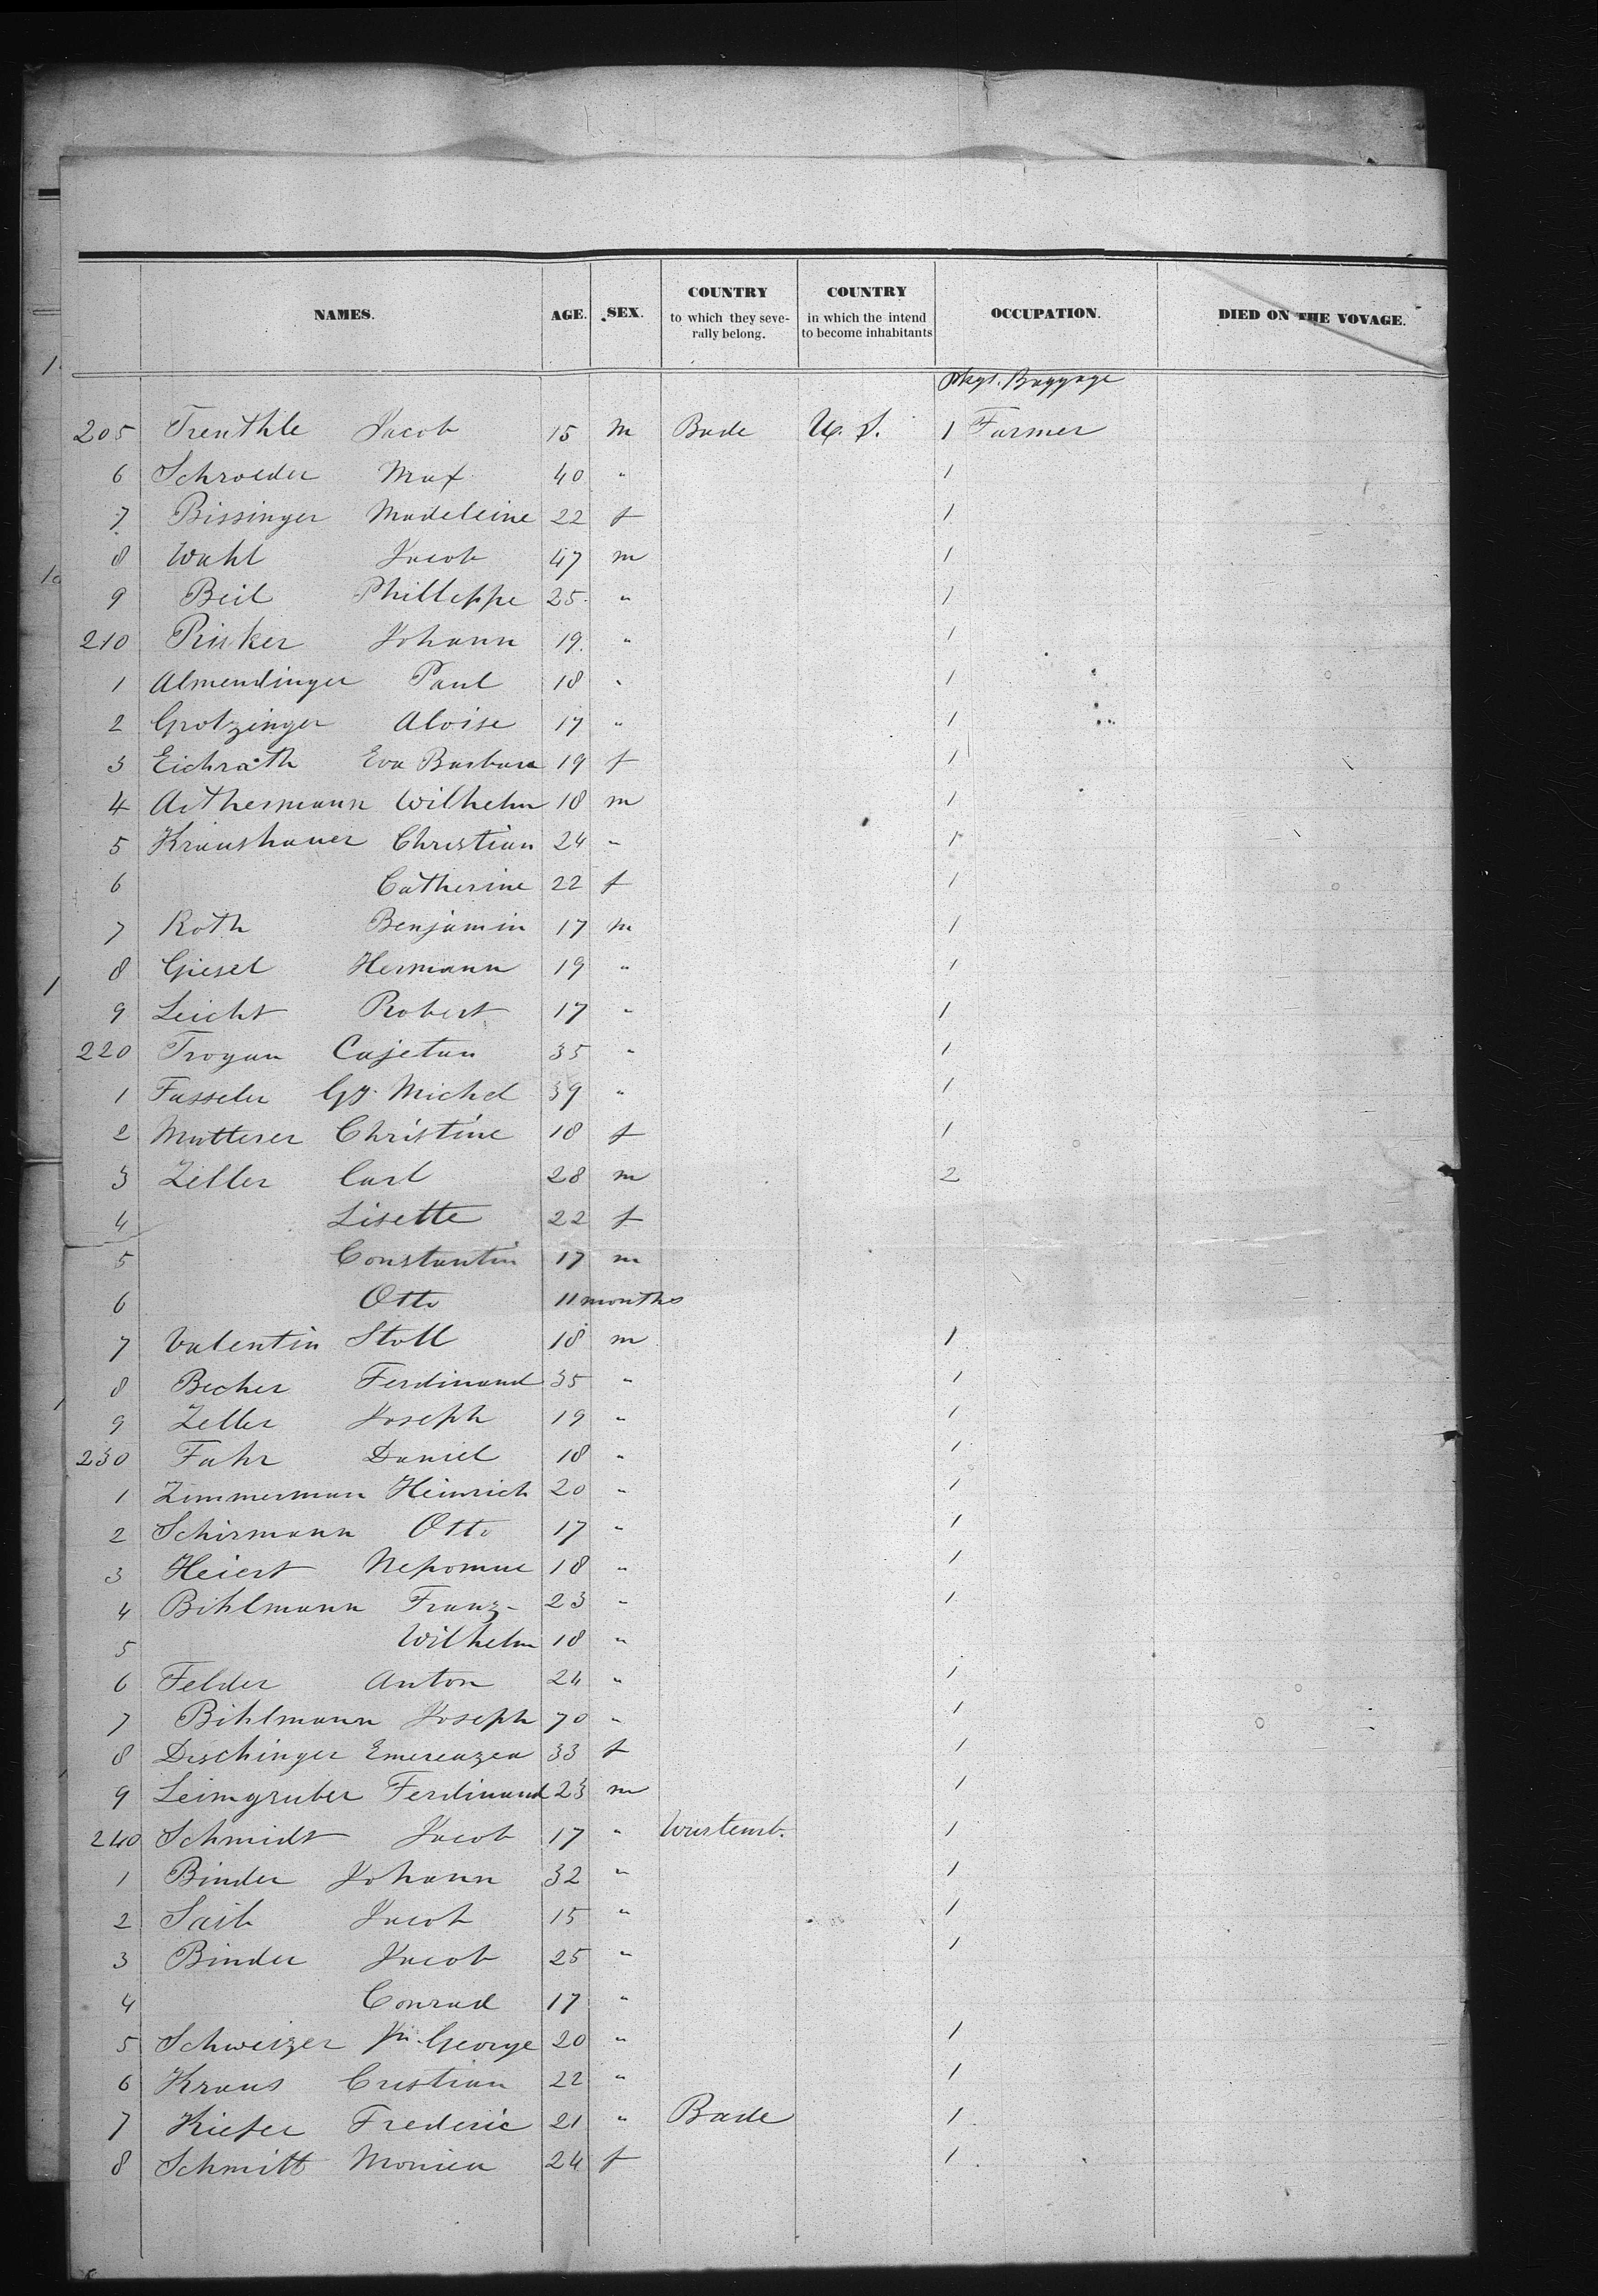 NAMES. AGE. SEX. COUNTRY to which they severally belong. COUNTRY in which the intend to become inhabitants OCCUPATION. DIED ON THE VOYAGE.
Pkgs. Baggage
205 Trenthle Jacob 15 m Bade U. S. 1 Farmer
6 Schroeder Max 40 " 1
7 Bissinger Madeleine 22 f 1
8 Wahl Jacob 47 m 1
9 Beil Philleppe 25 " 1
210 Rinker Johann 19 " 1
1 Almendinger Paul 18 " 1
2 Grotzinger Aloise 17 " 1
3 Eichrath Eva Barbara 19 f 1
4 Aithermann Wilhelm 18 m 1
5 Kraushauer Christian 24 " 1
6 Catherine 22 f 1
7 Roth Benjamin 17 m 1
8 Giesel Hermann 19 " 1
9 Leicht Robert 17 " 1
220 Troyan Cajetan 35 " 1
1 Fasseler Gg. Michel 39 " 1
2 Mutterer Christine 18 f 1
3 Zeller Carl 28 m 2
4 Lisette 22 f
5 Constantin 17 m
6 Otto 11 months
7 Valentin Stoll 18 m 1
8 Becher Ferdinand 35 " 1
9 Zeller Joseph 19 " 1
230 Fahr Daniel 18 " 1
1 Zimmerman Heinrich 20 " 1
2 Schirmann Otto 17 " 1
3 Heiert Nepomuc 18 " 1
4 Bihlmann Franz 23 " 1
5 Wilhelm 18 "
6 Felder Anton 24 " 1
7 Bihlmann Joseph 70 " 1
8 Dischinger Emerenzea 33 f 1
9 Leimgruber Ferdinand 23 m 1
240 Schmidt Jacob 17 " Wurtemb. 1
1 Binder Johann 32 " 1
2 Saib Jacob 15 " 1
3 Binder Jacob 25 " 1
4 Conrad 17 "
5 Schweizer Jn. George 20 " 1
6 Kraus Cristian 22 " 1
7 Kiefer Frederic 21 " Bade 1
8 Schmitt Monica 24 f 1